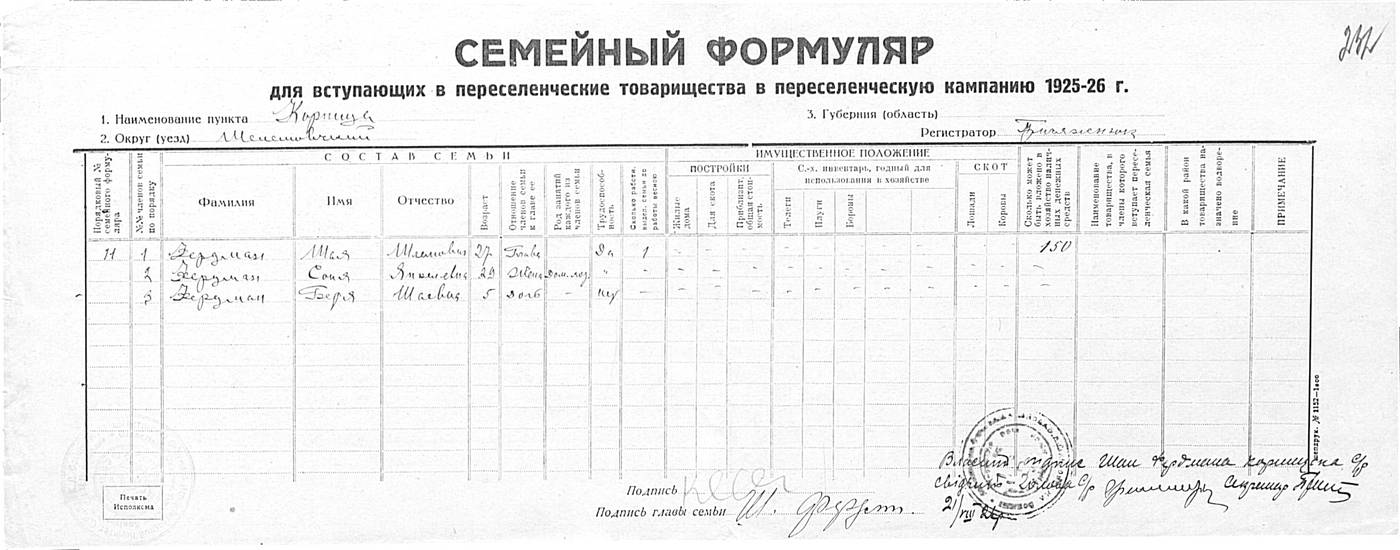 СЕМЕЙНЫЙ ФОРМУЛЯР
для вступающих в переселенческие товарищества в переселенческую кампанию 1925-26 г.
1. Наименование пункта Корница
3. Губерния (область)
2. Округ (уезд) Шепетовский
Регистратор
СОСТАВ СЕМЬИ
ИМУЩЕСТВЕННОЕ ПОЛОЖЕНИЕ
ПОСТРОЙКИ
С.-х. инвентарь, годный для использования в хозяйстве
СКОТ
Порядковый № семейного формуляра
№№ членов семьи по порядку
Фамилия
Имя
Отчество
Возраст
Отношение членов семьи к главе ее
Род занятий каждого из членов семьи
Трудоспособность
Жилые дома
Для скота
Приблизит. общая стоимость
Телеги
Плуги
Бороны
Лошади
Коровы
Сколько может быть вложено в хозяйство наличных денежных средств
Наименование товарищества, в члены которого вступает переселенческая семья
В какой район товарищества назначено водворение
ПРИМЕЧАНИЕ
11 1 Фердман Шая Шлемович 27 Глава — Да 1 – – – – – – – – 150
2 Фердман Соня 29 Жена Дом. хоз. " - – – – – – – – – –
3 Фердман Беря Шаевич 5 – нет - – – – – – – – – –
Печать Исполкома
Подпись
Подпись главы семьи Ш. Ферд
Власний підпис Шаи Фердмана
свідчить Голова с/р Секретар
21/VIII